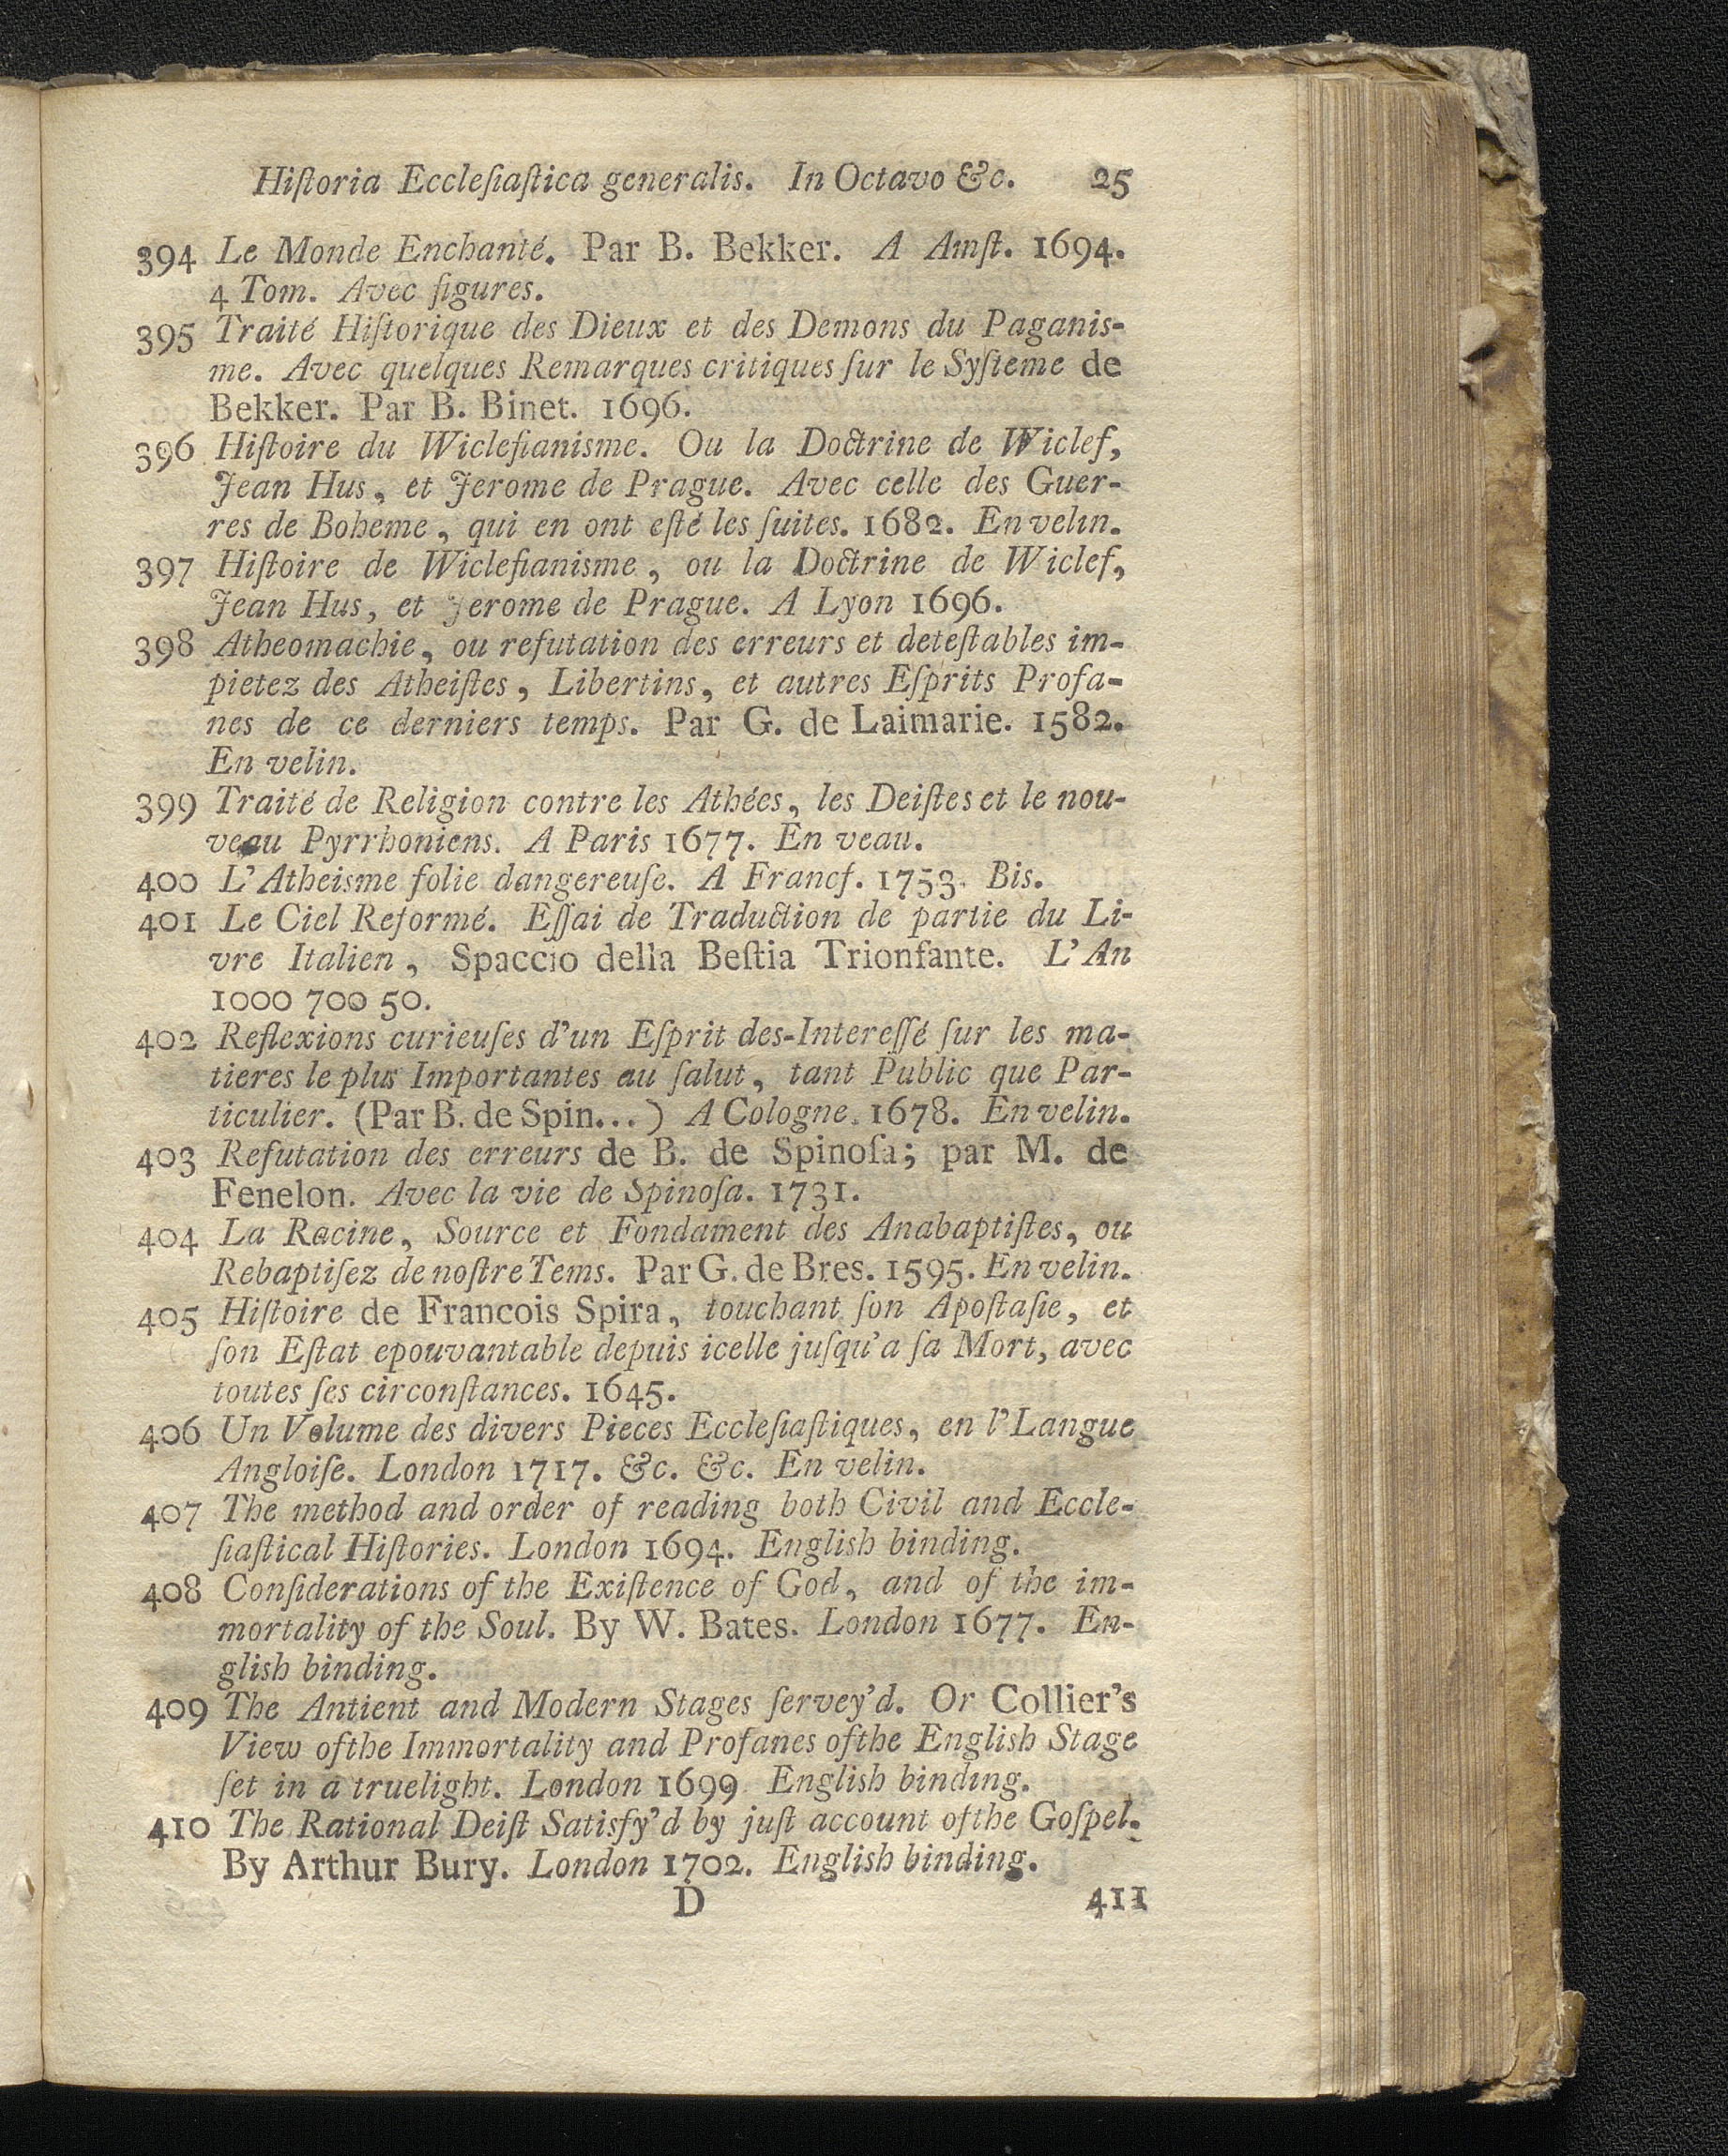 Hiſtoria Eccleſiaſtica generalis. In Octavo &c. 25
394 Le Monde Enchanté. Par B. Bekker. A Amſt. 1694.
4 Tom. Avec figures.
395 Traité Hiſtorique des Dieux et des Demons du Paganis-
me. Avec quelques Remarques critiques ſur le Syſteme de
Bekker. Par B. Binet. 1696.
396 Hiſtoire du Wiclefianisme. Ou la Doctrine de Wiclef,
Jean Hus, et Jerome de Prague. Avec celle des Guer-
res de Boheme, qui en ont eſté les ſuites. 1682. En velin.
397 Hiſtoire de Wiclefianisme, ou la Doctrine de Wiclef,
Jean Hus, et Jerome de Prague. A Lyon 1696.
398 Atheomachie, ou refutation des erreurs et deteſtables im-
pietez des Atheiſtes, Libertins, et autres Eſprits Profa-
nes de ce derniers temps. Par G. de Laimarie. 1582.
En velin.
399 Traité de Religion contre les Athées, les Deiſtes et le nou-
veau Pyrrhoniens. A Paris 1677. En veau.
400 L'Atheisme folie dangereuſe. A Francf. 1753. Bis.
401 Le Ciel Reformé. Eſſai de Traduction de partie du Li-
vre Italien, Spaccio della Beſtia Trionfante. L'An
1000 700 50.
402 Reflexions curieuſes d'un Eſprit des-Intereſſé ſur les ma-
tieres le plus Importantes au ſalut, tant Public que Par-
ticulier. (Par B. de Spin...) A Cologne. 1678. En velin.
403 Refutation des erreurs de B. de Spinoſa; par M. de
Fenelon. Avec la vie de Spinoſa. 1731.
404 La Racine, Source et Fondament des Anabaptiſtes, ou
Rebaptiſez de noſtre Tems. Par G. de Bres. 1595. En velin.
405 Hiſtoire de Francois Spira, touchant ſon Apoſtaſie, et
ſon Eſtat epouvantable depuis icelle juſqu'a ſa Mort, avec
toutes ſes circonſtances. 1645.
406 Un Volume des divers Pieces Eccleſiaſtiques, en l'Langue
Angloiſe. London 1717. &c. &c. En velin.
407 The method and order of reading both Civil and Eccle-
ſiaſtical Hiſtories. London 1694. English binding.
408 Conſiderations of the Exiſtence of God, and of the im-
mortality of the Soul. By W. Bates. London 1677. En-
glish binding.
409 The Antient and Modern Stages ſervey'd. Or Collier's
View ofthe Immortality and Profanes ofthe English Stage
ſet in a truelight. London 1699. English binding.
410 The Rational Deiſt Satisfy'd by juſt account ofthe Goſpel.
By Arthur Bury. London 1702. English binding.
D 411